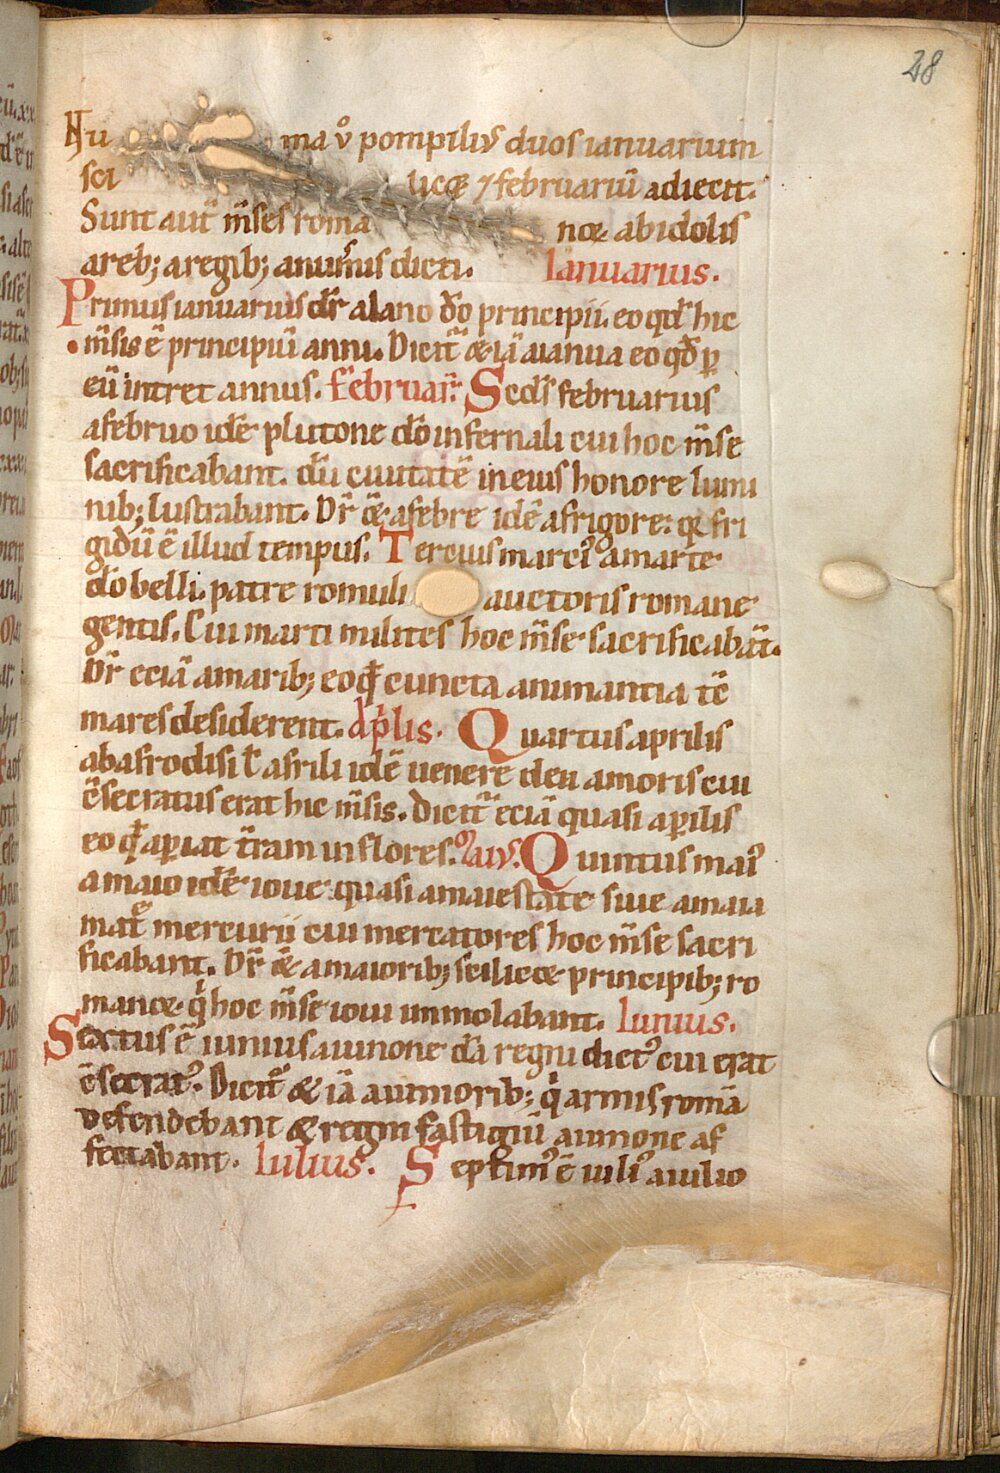 28
Nu ma v̊ pompiliꝰ duos ianuarium
sci licꝫ ⁊ februariū adiecit.
Sunt aut̄ m̄ses roma noꝝ ab idolis
a rebꝫ a regibꝫ a num̄is dicti. Ianuarius.
Primus ianuarius dr̄ a iano do principii. eo qd̄ hic
m̄sis ē principiū anni. Dicit̄ & iā a ianua eo qd̄ ꝑ
eū intret annus. februar̄. Secd̄s februarius
a februo idē plutone do infernali cui hoc m̄se
sacrificabant. dū ciuitatē in eius honore lumi
nibꝫ lustrabant. Dr̄ & a febre idē a frigore. qꝫ fri
gidū ē illud tempus. Tercius marciꝰ a marte
do belli. patre romuli auctoris romane
gentis. Cui marti milites hoc m̄se sacrificabāt.
Dr̄ eciā a maribꝫ eo qd̄ cuncta animantia tc̄
mares desiderent. Aplis. Quartus aprilis
ab afrodisi ł afrili idē uenere dea amoris cui
c̄secratus erat hic m̄sis. Dicit̄ eciā quasi aꝑilis
eo qd̄ aꝑiat t̄ram in flores. Maiꝰ. Quintus maiꝰ
a maio idē ioue quasi a maiestate siue a maia
mat̄e mercurii cui mercatores hoc m̄se sacri
ficabant. Dr̄ & a maioribꝫ scilicꝫ principibꝫ ro
manoꝝ qi hoc m̄se ioui immolabant. Iunius.
Sextus ē iunius a iunone da regni dictꝰ cui erat
c̄secratꝰ. Dicit̄ & iā a iunioribꝫ qi armis romā
defendebant & regni fastigiū a iunone af
fectabant. Iulius. Septimꝰ ē iuliꝰ a iulio